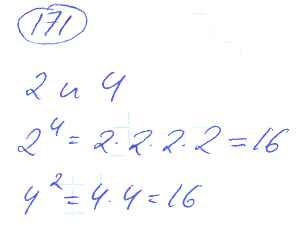 171
2 и 4
2⁴ = 2·2·2·2 = 16
4² = 4·4 = 16